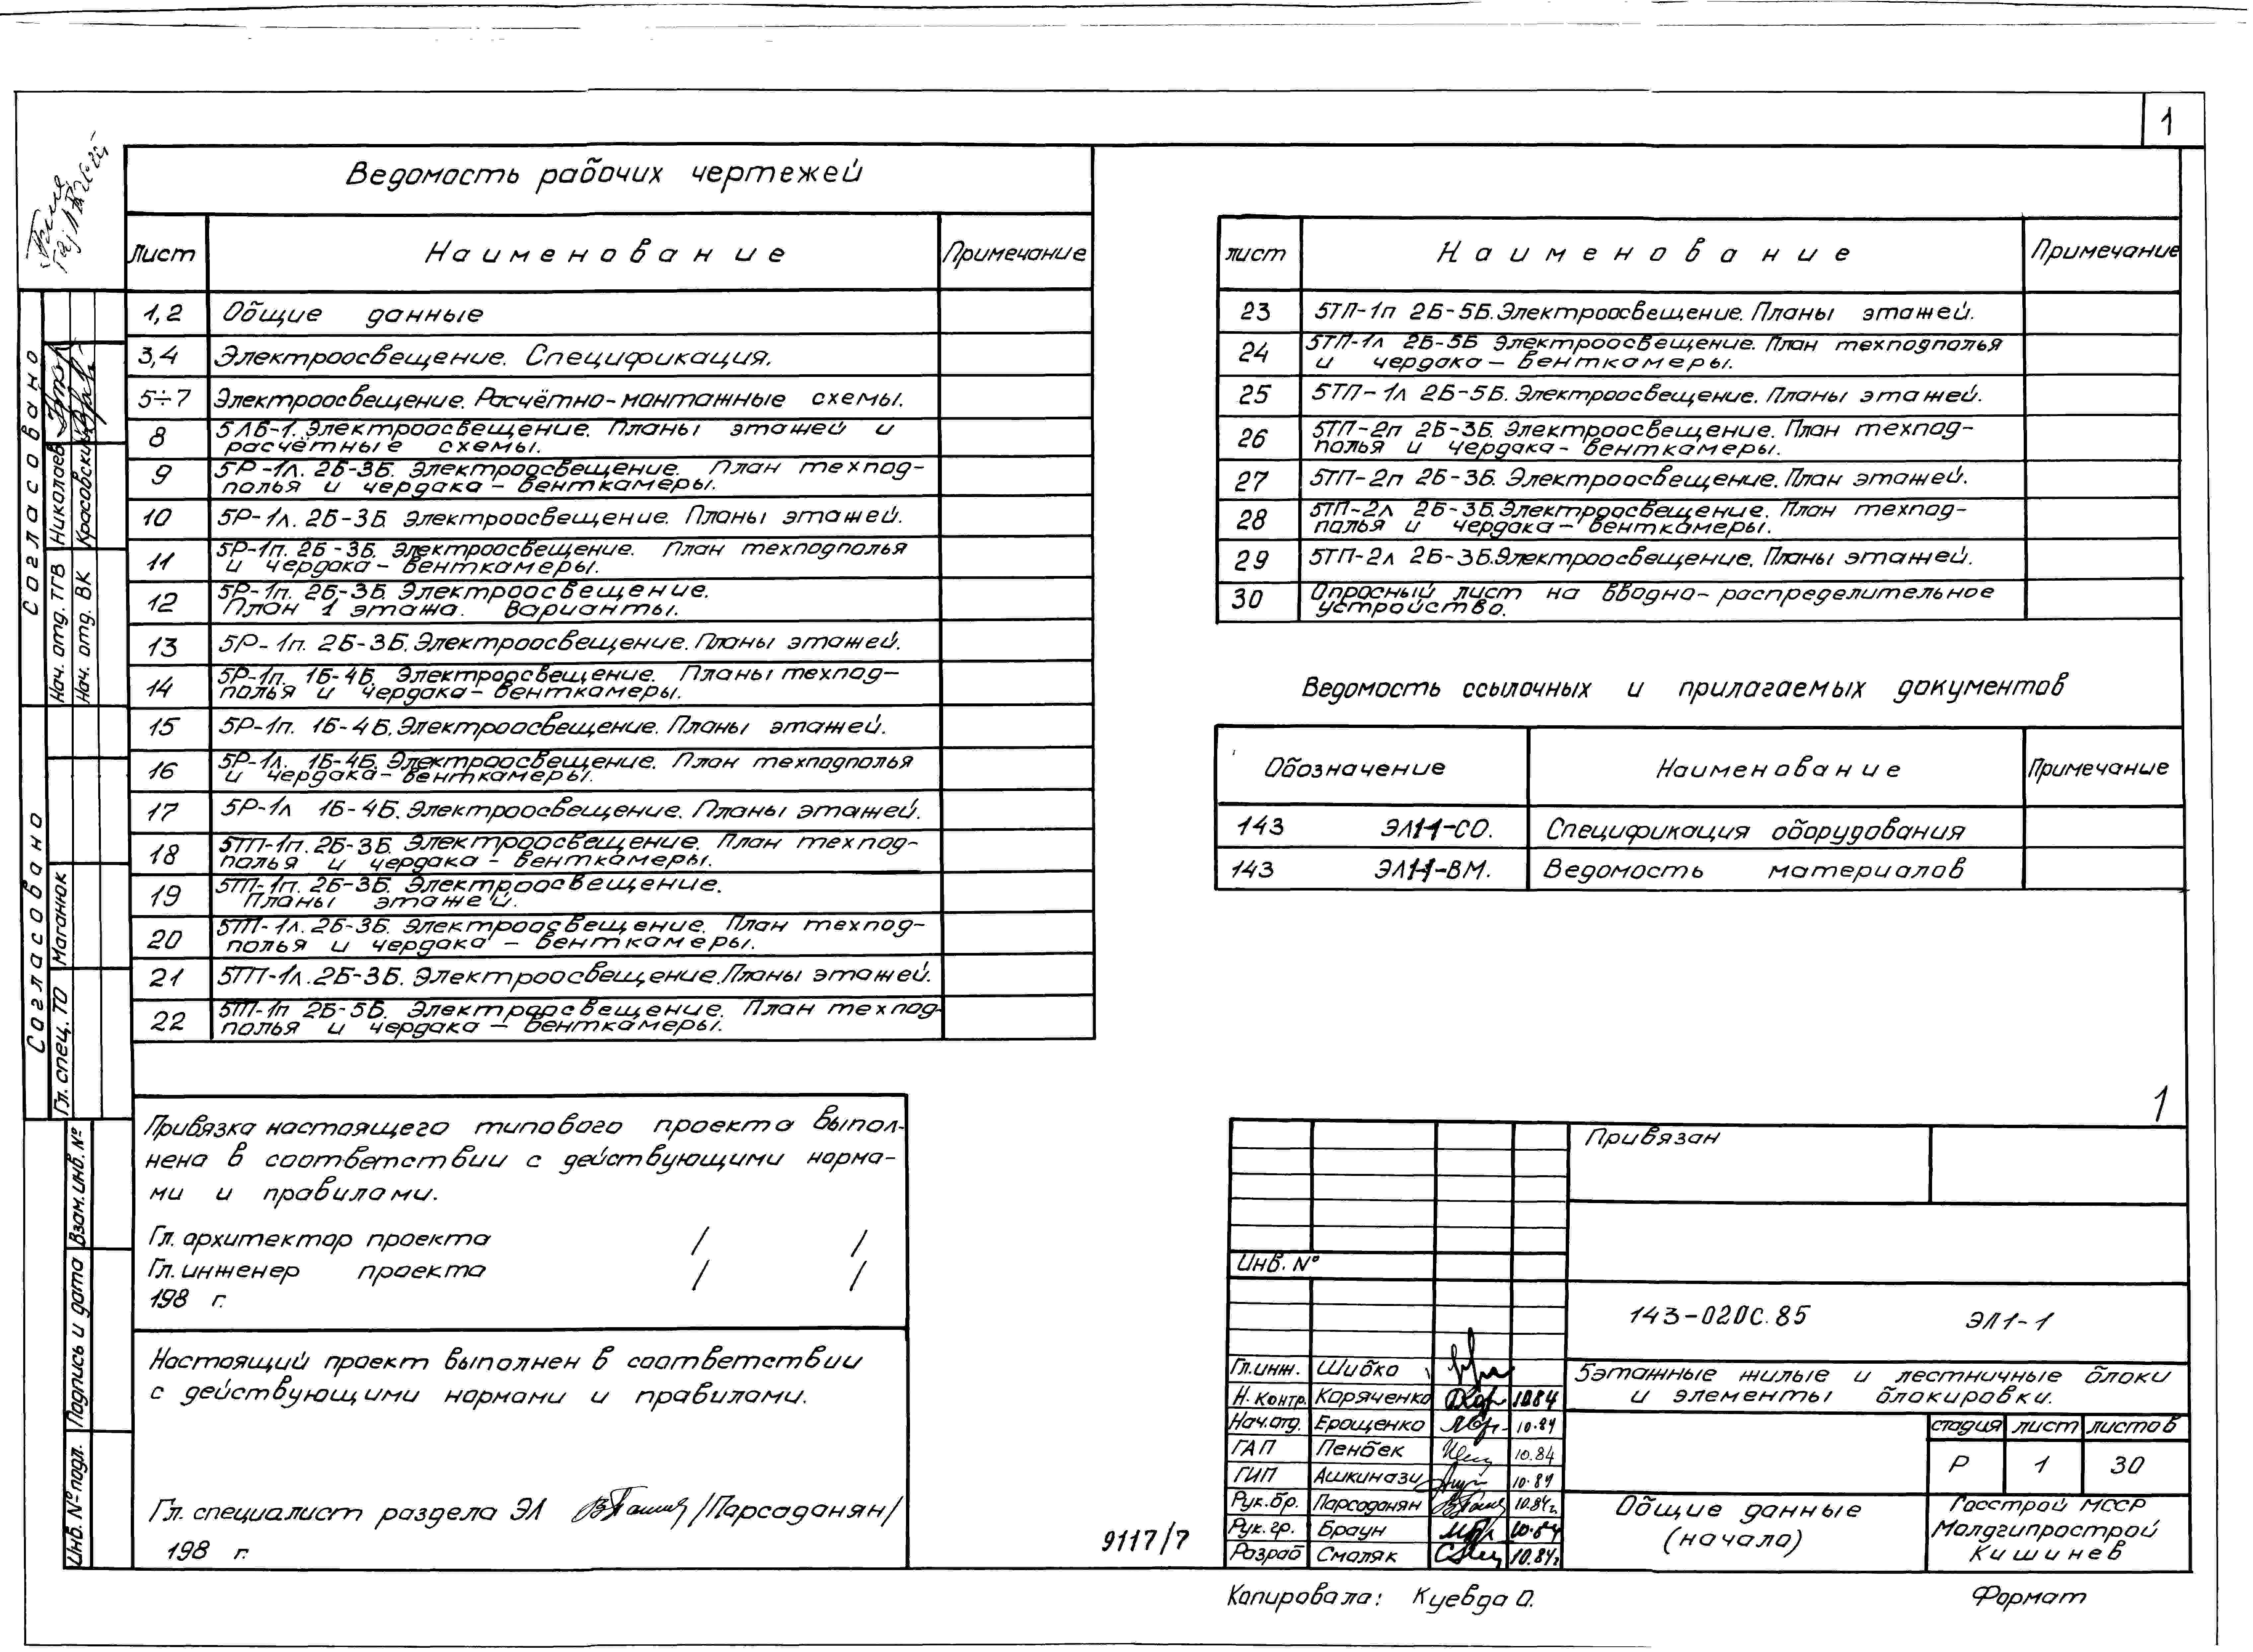 1
Ведомость рабочих чертежей
Лист Наименование Примечание
1,2 Общие данные
3,4 Электроосвещение. Спецификация.
5÷7 Электроосвещение. Расчётно-монтажные схемы.
8 5ЛБ-1. Электроосвещение. Планы этажей и
расчётные схемы.
9 5Р-1л. 2Б-3Б. Электроосвещение. План техпод-
полья и чердака - венткамеры.
10 5Р-1л. 2Б-3Б. Электроосвещение. Планы этажей.
11 5Р-1п. 2Б-3Б. Электроосвещение. План техподполья
и чердака - венткамеры.
12 5Р-1п. 2Б-3Б Электроосвещение.
План 1 этажа. Варианты.
13 5Р-1п. 2Б-3Б. Электроосвещение. Планы этажей.
14 5Р-1п. 1Б-4Б. Электроосвещение. Планы техпод-
полья и чердака - венткамеры.
15 5Р-1п. 1Б-4Б. Электроосвещение. Планы этажей.
16 5Р-1л. 1Б-4Б. Электроосвещение. План техподполья
и чердака - венткамеры.
17 5Р-1л 1Б-4Б. Электроосвещение. Планы этажей.
18 5ТП-1п. 2Б-3Б Электроосвещение. План техпод-
полья и чердака - венткамеры.
19 5ТП-1п. 2Б-3Б. Электроосвещение.
Планы этажей.
20 5ТП-1л. 2Б-3Б. Электроосвещение. План техпод-
полья и чердака - венткамеры.
21 5ТП-1л. 2Б-3Б. Электроосвещение. Планы этажей.
22 5ТП-1п 2Б-5Б. Электроосвещение. План техпод-
полья и чердака - венткамеры.
лист Наименование Примечание
23 5ТП-1п 2Б-5Б. Электроосвещение. Планы этажей.
24 5ТП-1л 2Б-5Б Электроосвещение. План техподполья
и чердака - венткамеры.
25 5ТП-1л 2Б-5Б. Электроосвещение. Планы этажей.
26 5ТП-2п 2Б-3Б. Электроосвещение. План техпод-
полья и чердака - венткамеры.
27 5ТП-2п 2Б-3Б. Электроосвещение. План этажей.
28 5ТП-2л 2Б-3Б. Электроосвещение. План техпод-
полья и чердака - венткамеры.
29 5ТП-2л 2Б-3Б. Электроосвещение. Планы этажей.
30 Опросный лист на вводно-распределительное
устройство.
Ведомость ссылочных и прилагаемых документов
Обозначение Наименование Примечание
143 ЭЛ11-СО. Спецификация оборудования
143 ЭЛ11-ВМ. Ведомость материалов
Согласовано
Нач. отд. ТГВ Николаев
Нач. отд. ВК Красовский
Согласовано
Гл. спец. ТО Маганюк
Взам. инв. №
Подпись и дата
Инв. № подл.
Привязка настоящего типового проекта выпол-
нена в соответствии с действующими норма-
ми и правилами.
Гл. архитектор проекта / /
Гл. инженер проекта / /
198 г.
Настоящий проект выполнен в соответствии
с действующими нормами и правилами.
Гл. специалист раздела ЭЛ /Парсаданян/
198 г.
9117/7
1
Привязан
Инв. №
143-020С.85 ЭЛ1-1
Гл. инж. Шибко
Н. контр. Коряченко 10.84
Нач. отд. Ерощенко 10.84
ГАП Пенбек 10.84
ГИП Ашкинази 10.84
Рук. бр. Парсаданян 10.84г.
Рук. гр. Браун 10.84
Разраб Смоляк 10.84г
5этажные жилые и лестничные блоки
и элементы блокировки.
стадия лист листов
Р 1 30
Общие данные
(начало)
Госстрой МССР
Молдгипрострой
Кишинев
Копировала: Куевда О.
Формат